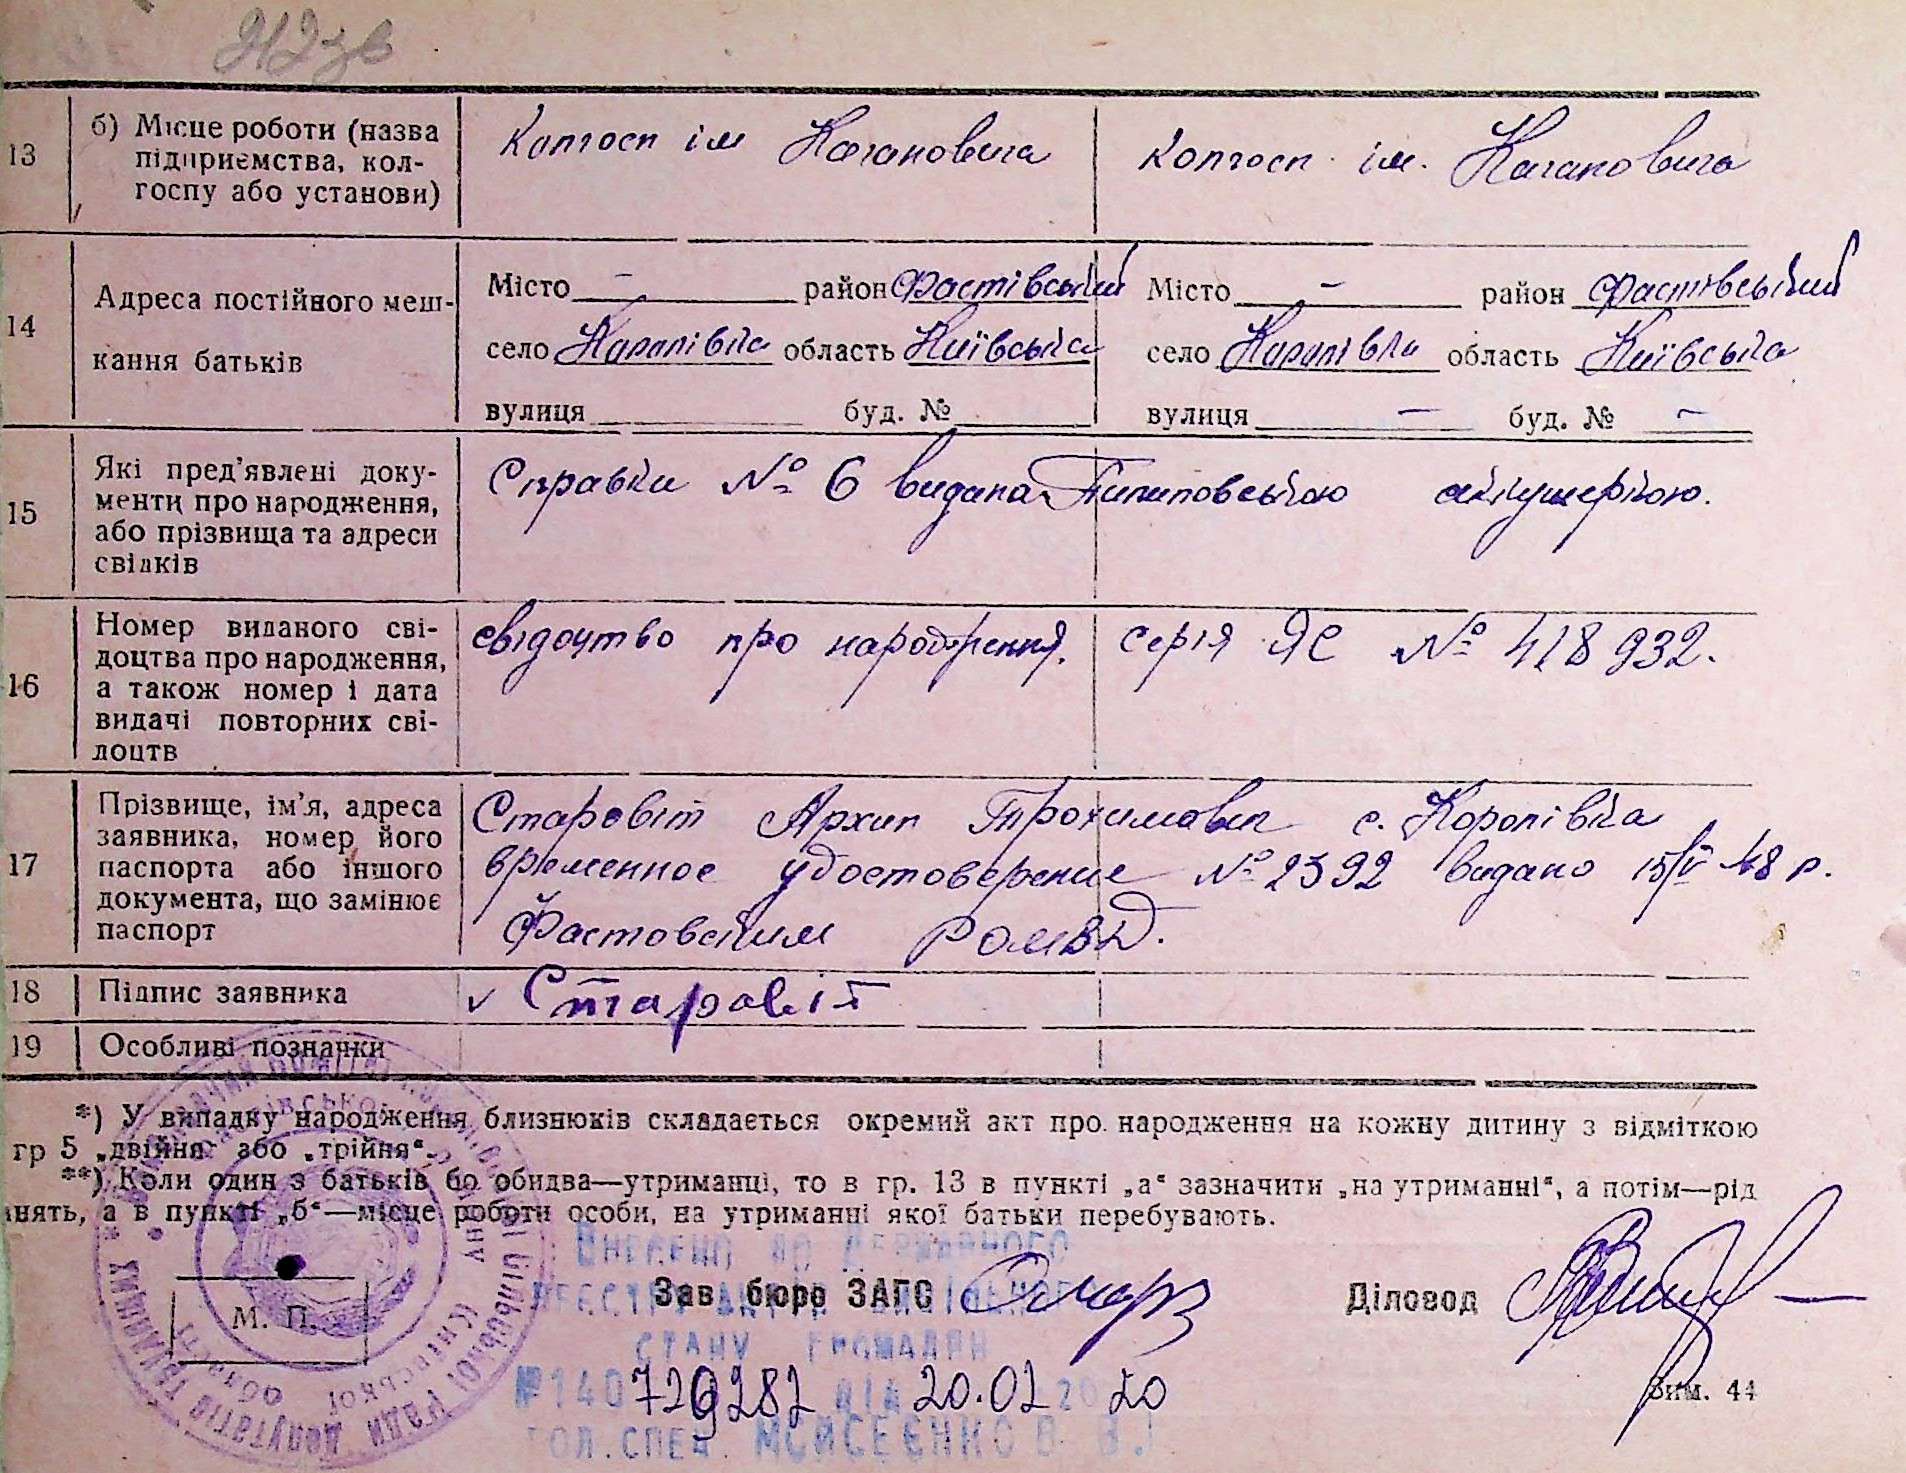 13 б) Місце роботи (назва
підприємства, кол-
госпу або установи)
Колгосп ім Кагановича
Колгосп ім. Кагановича
14 Адреса постійного меш-
кання батьків
Місто – район Фастівський
село Королівка область Київська
вулиця буд. №
Місто – район Фастівський
село Королівка область Київська
вулиця – буд. № –
15 Які пред'явлені доку-
менти про народження,
або прізвища та адреси
свідків
Справка № 6 видана Пилиповською акушеркою.
16 Номер виданого сві-
доцтва про народження,
а також номер і дата
видачі повторних сві-
доцтв
свідоцтво про народження. серія ЯС № 418932.
17 Прізвище, ім'я, адреса
заявника, номер його
паспорта або іншого
документа, що замінює
паспорт
Старовіт Архип Трохимович с. Королівка
временное удостоверение № 2392 видано 15/IV 48 р.
Фастовским РОМВД.
18 Підпис заявника
v Старовіт
19 Особливі позначки
*) У випадку народження близнюків складається окремий акт про народження на кожну дитину з відміткою
гр 5 „двійня" або „трійня".
**) Коли один з батьків бо обидва—утриманці, то в гр. 13 в пункті „а" зазначити „на утриманні", а потім—рід
нять, а в пункті „б"—місце роботи особи, на утриманні якої батьки перебувають.
Внесено до Державного
реєстру актів цивільного
стану громадян
№ 140 729282 від 20.02 2020
гол. спец. Мойсеєнко В. В.
Зав. бюро ЗАГС
Діловод
М. П.
Зим. 44